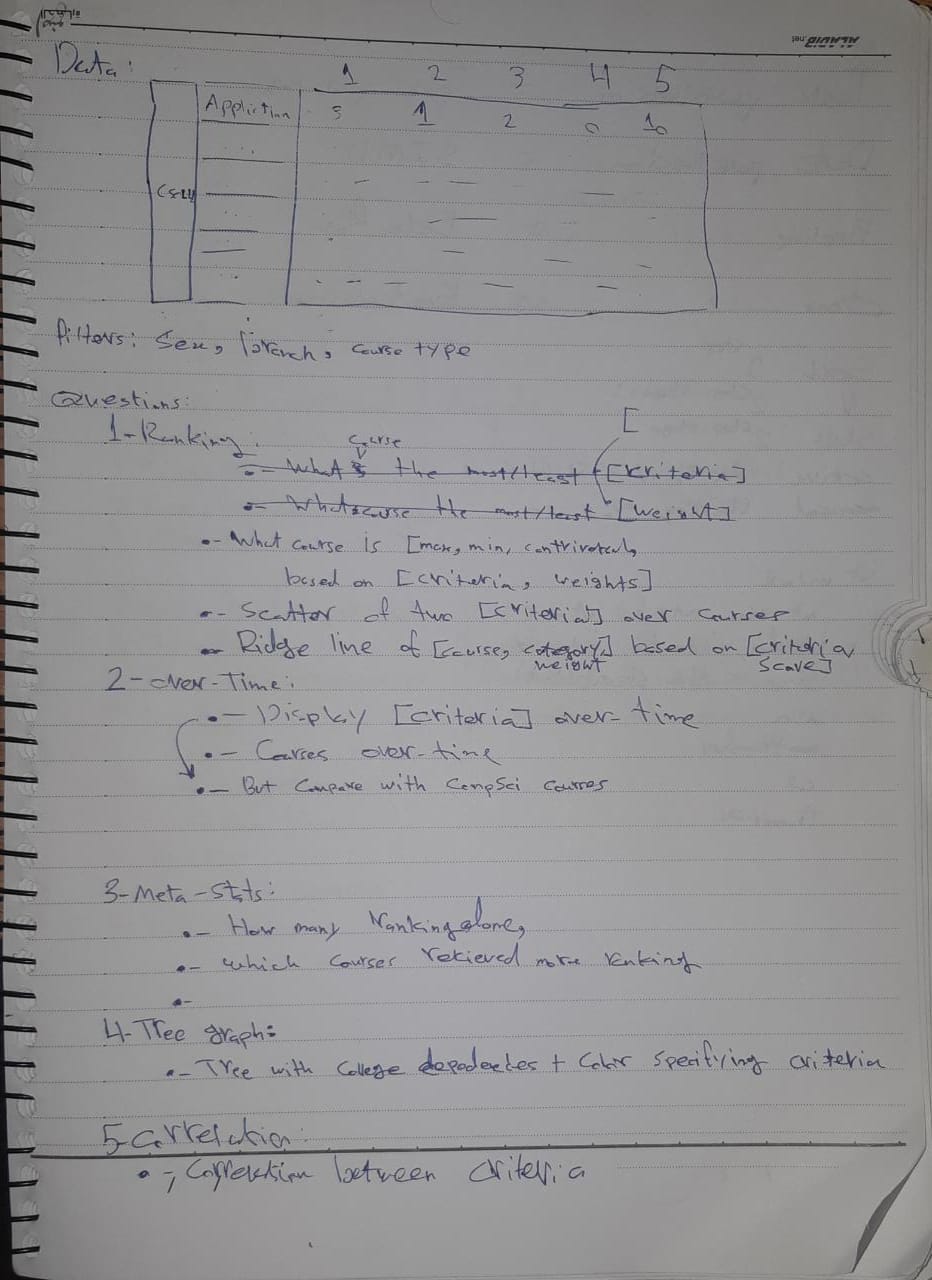 Data:
1 2 3 4 5
Appliction 5 1 2 0 10
filters: Sex, branch, course type
Questions:
1-Ranking:
course
- What is the most/least [kriteria]
[
- What course the most/least [weight]
- What course is [max, min,
based on [criteria, weights]
- Scatter of two [criteria] over courses
- Ridge line of [course, category] based on [criteria
weight score]
2-over-Time:
- Display [criteria] over-time
- Courses over-time
- But Compare with CompSci courses
3-Meta-Stats:
- How many Ranking alone,
- which courses retrieved more ranking
-
4-Tree graph:
- Tree with College dependectes + Color specifying criteria
5-Correlation:
- Correlation between criteria